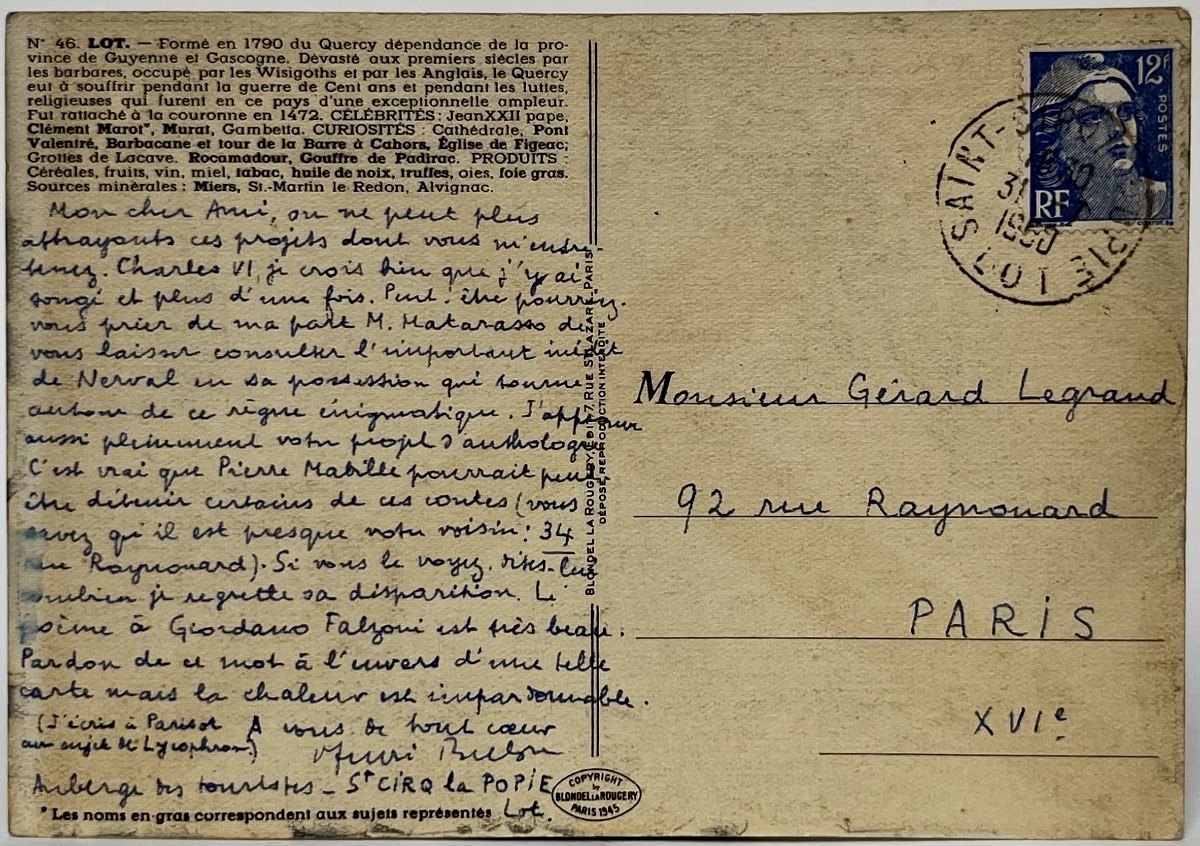 N° 46. LOT. — Formé en 1790 du Quercy dépendance de la pro-
vince de Guyenne et Gascogne. Dévasté aux premiers siècles par
les barbares, occupé par les Wisigoths et par les Anglais, le Quercy
eut à souffrir pendant la guerre de Cent ans et pendant les luttes,
religieuses qui furent en ce pays d'une exceptionnelle ampleur.
Fut rattaché à la couronne en 1472. CÉLÉBRITÉS : Jean XXII pape,
Clément Marot*, Murat, Gambetta. CURIOSITÉS : Cathédrale, Pont
Valentré, Barbacane et tour de la Barre à Cahors, Église de Figeac;
Grottes de Lacave. Rocamadour, Gouffre de Padirac. PRODUITS :
Céréales, fruits, vin, miel, tabac, huile de noix, truffes, oies, foie gras.
Sources minérales : Miers, St.-Martin le Redon, Alvignac.
Mon cher Ami, on ne peut plus
attrayants ces projets dont vous m'entre-
tenez. Charles VI, je crois bien que j'y ai
songé et plus d'une fois. Peut-être pourriez-
vous prier de ma part M. Matarasso de
vous laisser consulter l'important inédit
de Nerval en sa possession qui tourne
autour de ce règne énigmatique. J'approuve
aussi pleinement votre projet d'anthologie
C'est vrai que Pierre Mabille pourrait peut
être détenir certains de ces contes (vous
savez qu'il est presque votre voisin : 34
rue Raynouard). Si vous le voyez, dites-lui
combien je regrette sa disparition. Le
poème à Giordano Falzoni est très beau.
Pardon de ce mot à l'envers d'une telle
carte mais la chaleur est impardonnable.
(J'écris à Parisot
au sujet de Lycophron.)
A vous de tout cœur
Auberge des touristes - St CIRQ la POPIE
Lot.
* Les noms en gras correspondent aux sujets représentés
BLONDEL LA ROUGERY, ÉDIT. 7, RUE St LAZARE, PARIS
DÉPOSÉ REPRODUCTION INTERDITE
COPYRIGHT
by
BLONDEL LA ROUGERY
PARIS 1945
12F
POSTES
RF
SAINT-
31
1950
PIE
LOT
Monsieur Gérard Legrand
92 rue Raynouard
PARIS
XVIe